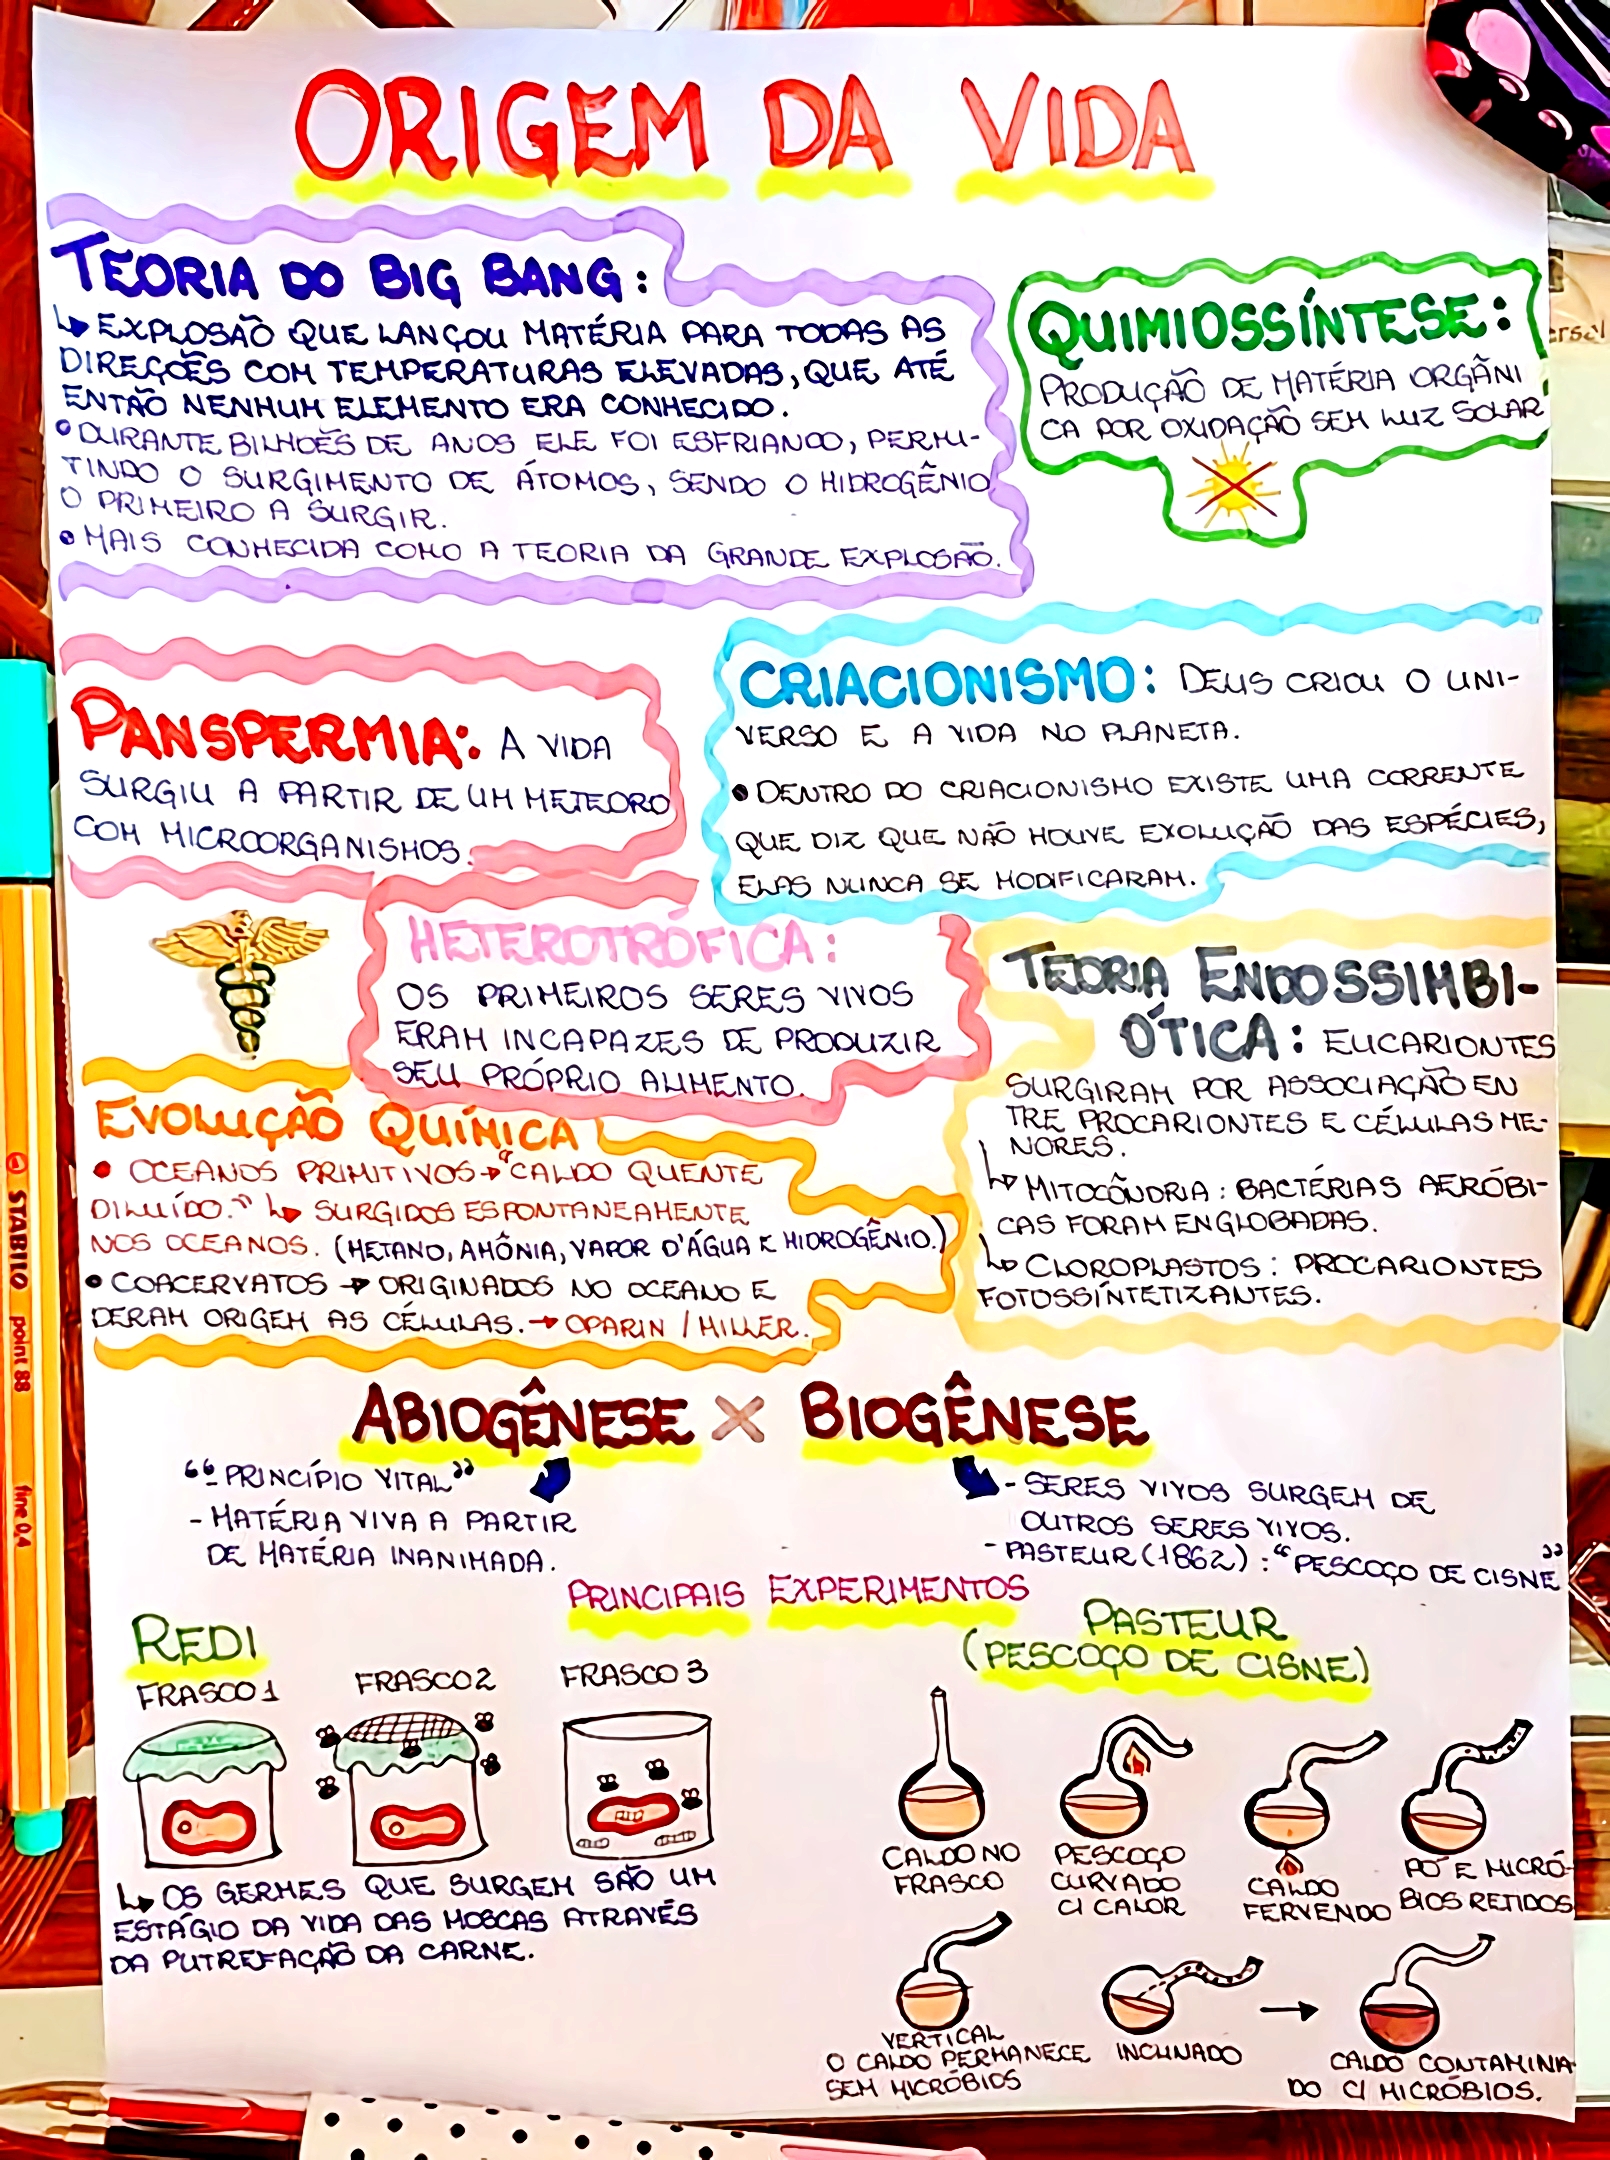 ORIGEM DA VIDA
TEORIA DO BIG BANG:
↳ EXPLOSÃO QUE LANÇOU MATÉRIA PARA TODAS AS
DIREÇÕES COM TEMPERATURAS ELEVADAS, QUE ATÉ
ENTÃO NENHUM ELEMENTO ERA CONHECIDO.
• DURANTE BILHÕES DE ANOS ELE FOI ESFRIANDO, PERMI-
TINDO O SURGIMENTO DE ÁTOMOS, SENDO O HIDROGÊNIO
O PRIMEIRO A SURGIR.
• MAIS CONHECIDA COMO A TEORIA DA GRANDE EXPLOSÃO.
QUIMIOSSÍNTESE:
PRODUÇÃO DE MATÉRIA ORGÂNI
CA POR OXIDAÇÃO SEM LUZ SOLAR
PANSPERMIA: A VIDA
SURGIU A PARTIR DE UM METEORO
COM MICROORGANISMOS.
CRIACIONISMO: DEUS CRIOU O UNI-
VERSO E A VIDA NO PLANETA.
• DENTRO DO CRIACIONISMO EXISTE UMA CORRENTE
QUE DIZ QUE NÃO HOUVE EXOLUÇÃO DAS ESPÉCIES,
ELAS NUNCA SE MODIFICARAM.
HETEROTRÓFICA:
OS PRIMEIROS SERES VIVOS
ERAM INCAPAZES DE PRODUZIR
SEU PRÓPRIO ALIMENTO.
TEORIA ENDOSSIMBI-
ÓTICA: EUCARIONTES
SURGIRAM POR ASSOCIAÇÃO EN
TRE PROCARIONTES E CÉLULAS ME-
NORES.
↳ MITOCÔNDRIA: BACTÉRIAS AERÓBI-
CAS FORAM ENGLOBADAS.
↳ CLOROPLASTOS: PROCARIONTES
FOTOSSÍNTETIZANTES.
EVOLUÇÃO QUÍMICA
• OCEANOS PRIMITIVOS → "CALDO QUENTE
DILUÍDO." ↳ SURGIDOS ESPONTANEAMENTE
NOS OCEANOS. (METANO, AMÔNIA, VAPOR D'ÁGUA E HIDROGÊNIO.)
• COACERVATOS → ORIGINADOS NO OCEANO E
DERAM ORIGEM AS CÉLULAS. → OPARIN / MILLER.
ABIOGÊNESE X BIOGÊNESE
"- PRINCÍPIO VITAL"
- MATÉRIA VIVA A PARTIR
DE MATÉRIA INANIMADA.
- SERES VIVOS SURGEM DE
OUTROS SERES VIVOS.
- PASTEUR (1862): "PESCOÇO DE CISNE"
PRINCIPAIS EXPERIMENTOS
REDI
FRASCO 1
FRASCO 2
FRASCO 3
↳ OS GERMES QUE SURGEM SÃO UM
ESTÁGIO DA VIDA DAS MOSCAS ATRAVÉS
DA PUTREFAÇÃO DA CARNE.
PASTEUR
(PESCOÇO DE CISNE)
CALDO NO
FRASCO
PESCOÇO
CURVADO
C/ CALOR
CALDO
FERVENDO
PÓ E MICRÓ-
BIOS RETIDOS
VERTICAL
O CALDO PERMANECE
SEM MICRÓBIOS
INCLINADO
CALDO CONTAMINA
DO C/ MICRÓBIOS.
STABILO point 88 fine 0,4
ersal